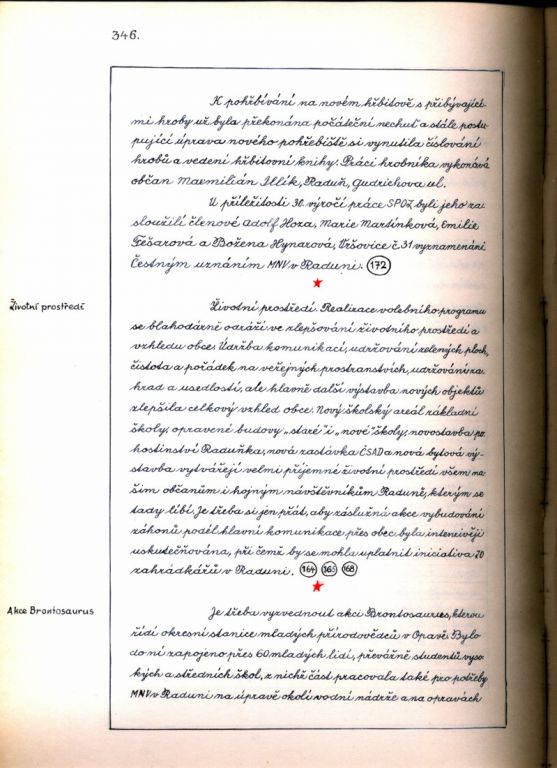 346.
K pohřbívání na novém hřbitově s přibývající-
mi hroby už byla překonána počáteční nechuť a stále postu-
pující úprava nového pohřebiště si vynutila číslování
hrobů a vedení hřbitovní knihy. Práci hrobníka vykonává
občan Maxmilián Illík, Raduň, Gudrichova ul.
U příležitosti 30. výročí práce SPOZ byli jeho za-
sloužilí členové Adolf Hora, Marie Martínková, Emilie
Fešarová a Božena Hynarová, Vršovice č. 31 vyznamenáni
Čestným uznáním MNV v Raduni. 172
Životní prostředí
Životní prostředí. Realizace volebního programu
se blahodárně odráží ve zlepšování životního prostředí a
vzhledu obce. Údržba komunikací, udržování zelených ploch,
čistota a pořádek na veřejných prostranstvích, udržování za-
hrad a usedlostí, ale hlavně další výstavba nových objektů
zlepšila celkový vzhled obce. Nový školský areál základní
školy, opravené budovy „staré" i „nové" školy, novostavba po-
hostinství Raduňka, nová zastávka ČSAD a nová bytová vý-
stavba vytvářejí velmi příjemné životní prostředí všem na-
šim občanům i hojným návštěvníkům Raduně, kterým se
tady líbí. Je třeba si jen přát, aby záslužná akce vybudování
záhonů podél hlavní komunikace přes obec byla intenzivěji
uskutečňována, při čemž by se mohla uplatnit iniciativa ZO
zahrádkářů v Raduni. 164 165 168
Akce Brontosaurus
Je třeba vyzvednout akci Brontosaurus, kterou
řídí okresní stanice mladých přírodovědců v Opavě. Bylo
do ní zapojeno přes 60 mladých lidí, převážně studentů vyso-
kých a středních škol, z nichž část pracovala také pro potřeby
MNV v Raduni na úpravě okolí vodní nádrže a na opravách